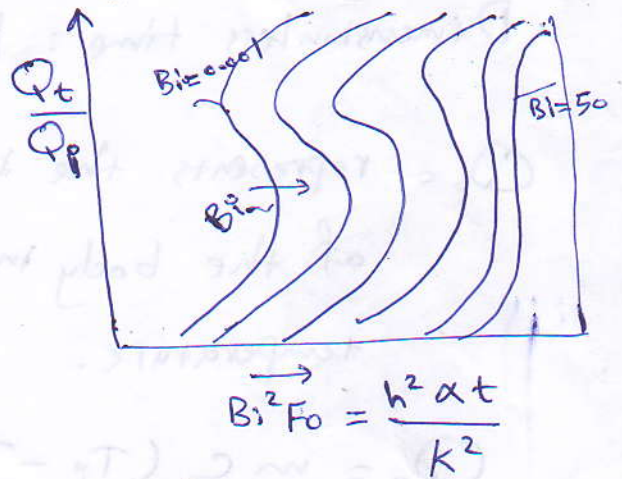 Q_t
Q_p
Bi=0.001
Bi
Bi=50
Bi²Fo = h²αt
K²